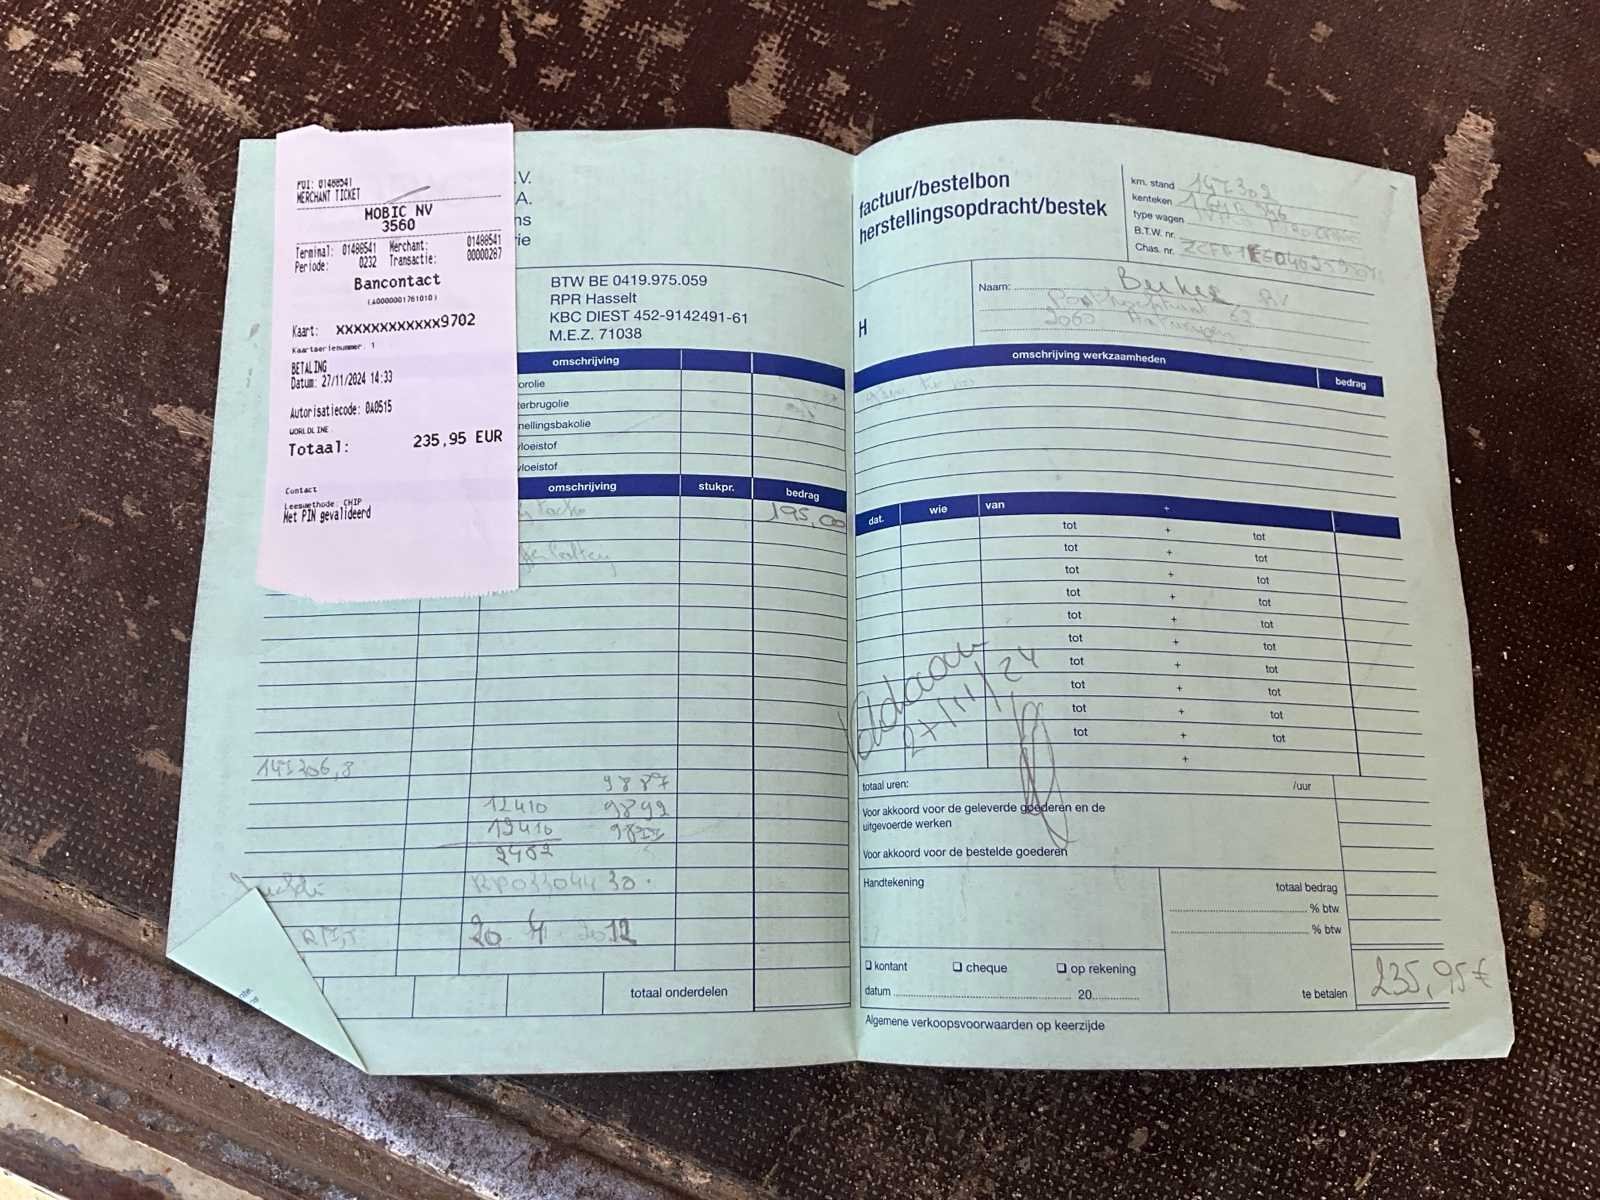 POI: 01488541
MERCHANT TICKET
MOBIC NV
3560
Terminal: 01488541 Merchant: 01488541
Periode: 0232 Transactie: 00000287
Bancontact
(A0000001761010)
Kaart: xxxxxxxxxxxx9702
Kaartserienummer: 1
BETALING
Datum: 27/11/2024 14:33
Autorisatiecode: 0A0515
WORLDLINE
Totaal: 235,95 EUR
Contact
Leesmethode: CHIP
Met PIN gevalideerd
.V.
A.
ns
rie
BTW BE 0419.975.059
RPR Hasselt
KBC DIEST 452-9142491-61
M.E.Z. 71038
omschrijving
orolie
terbrugolie
nellingsbakolie
vloeistof
vloeistof
omschrijving stukpr. bedrag
195,00
12410
2482
20 4 2012
totaal onderdelen
factuur/bestelbon
herstellingsopdracht/bestek
km. stand
kenteken
type wagen
B.T.W. nr.
Chas. nr.
H
Naam:
2060 Antwerpen
omschrijving werkzaamheden bedrag
dat. wie van +
tot + tot
tot + tot
tot + tot
tot + tot
tot + tot
tot + tot
tot + tot
tot + tot
tot + tot
tot + tot
+
Voldaan
27/11/24
totaal uren: /uur
Voor akkoord voor de geleverde goederen en de
uitgevoerde werken
Voor akkoord voor de bestelde goederen
Handtekening
totaal bedrag
% btw
% btw
kontant cheque op rekening
datum 20
te betalen 235,95 €
Algemene verkoopsvoorwaarden op keerzijde